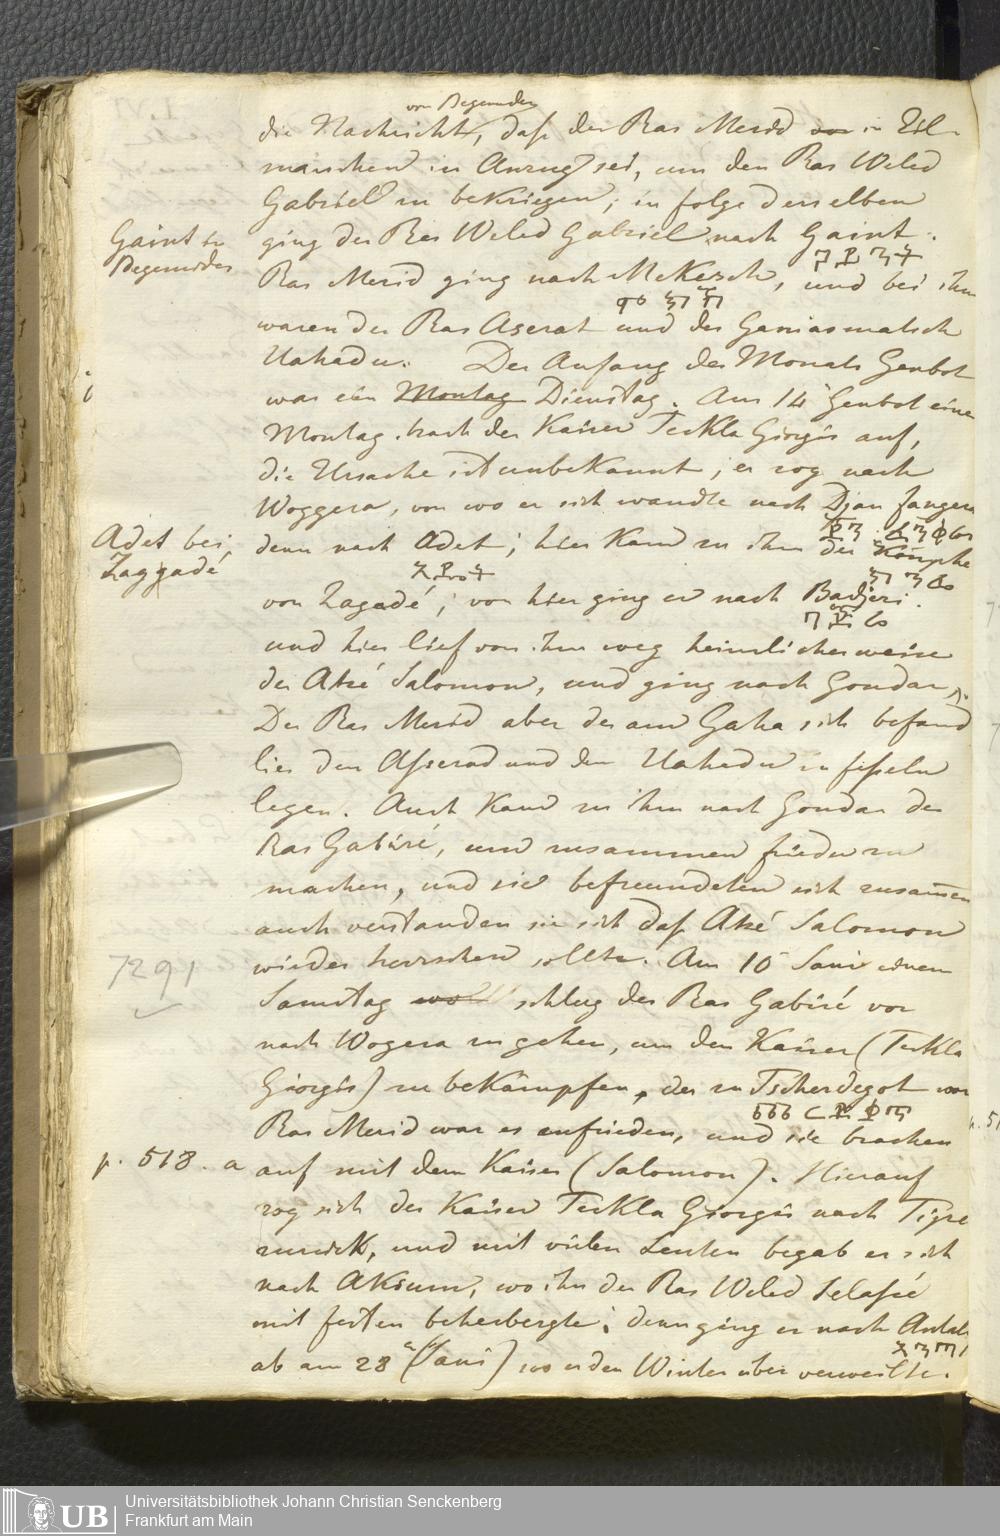 von Begemder
die Nachricht, daß der Ras Merid in Eil-
märschen in Anzug sei, um den Ras Weled
Gabriel zu bekriegen; in folge derselben
ging der Ras Weled Gabriel nach Gaint.
Gaint in
Begemeder
Ras Merid ging nach Mekesch, und bei ihm
waren der Ras Aserat und der
Uahadu. Der Anfang des Monats Genbot
war ein Montag Dienstag. Am 14 Genbot einem
Montag brach der Kaiser Teckla Giorgis auf,
die Ursache ist unbekannt; er zog nach
Woggera, von wo er sich wandte nach Djan fangera
Adet bei
Zaggadé
dann nach Adet; hier kam zu ihm der
von Zagadé; von hier ging er nach Badjeri.
und hier lief von ihm weg heimlicherweise
der Atsé Salomon, und ging nach Gondar.
Der Ras Merid aber der am Gaha sich befand
lies den Asserad und den Uahadu in fesseln
legen. Auch kam zu ihm nach Gondar der
Ras Gabiré, um zusammen frieden zu
machen, und sie befreundeten sich zusam̅en
auch verstanden sie sich daß Atsé Salomon
wieder herrschen sollte. Am 10 Sani einem
7291
Samstag schlug der Ras Gabiré vor
nach Wogera zu gehen, um den Kaiser (Teckla
Giorgis) zu bekämpfen, der zu Tscherdegot war
Ras Merid war es zufrieden, und sie brachen
p. 518. a
auf mit dem Kaiser (Salomon). Hierauf
zog sich der Kaiser Teckla Giorgis nach Tigre
zurück, und mit vielen Leuten begab er sich
nach Aksum, wo ihn der Ras Weled Selassé
mit festen beherbergte; dann ging er nach Antalo
ab am 28 (Sani) wo er den Winter über verweilte.
Universitätsbibliothek Johann Christian Senckenberg
Frankfurt am Main
UB